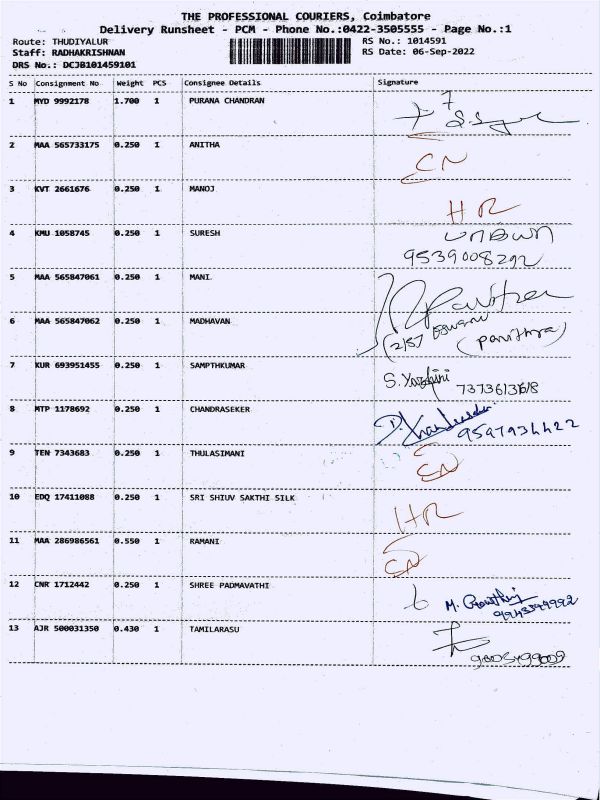 THE PROFESSIONAL COURIERS, Coimbatore
Delivery Runsheet - PCM - Phone No.:0422-3505555 - Page No.:1
Route: THUDIYALUR RS No.: 1014591
Staff: RADHAKRISHNAN RS Date: 06-Sep-2022
DRS No.: DCJB101459101
S No Consignment No Weight PCS Consignee Details Signature
1 MYD 9992178 1.700 1 PURANA CHANDRAN
2 MAA 565733175 0.250 1 ANITHA CN
3 KVT 2661676 0.250 1 MANOJ HR
4 KMU 1058745 0.250 1 SURESH
9539008292
5 MAA 565847061 0.250 1 MANI Pavithra
6 MAA 565847062 0.250 1 MADHAVAN (pavithra)
7 KUR 693951455 0.250 1 SAMPTHKUMAR S. Yazhini
8 MTP 1178692 0.250 1 CHANDRASEKER
9597934422
9 TEN 7343683 0.250 1 THULASIMANI CN
10 EDQ 17411088 0.250 1 SRI SHIUV SAKTHI SILK HR
11 MAA 286986561 0.550 1 RAMANI CN
12 CNR 1712442 0.250 1 SHREE PADMAVATHI
13 AJR 500031350 0.430 1 TAMILARASU